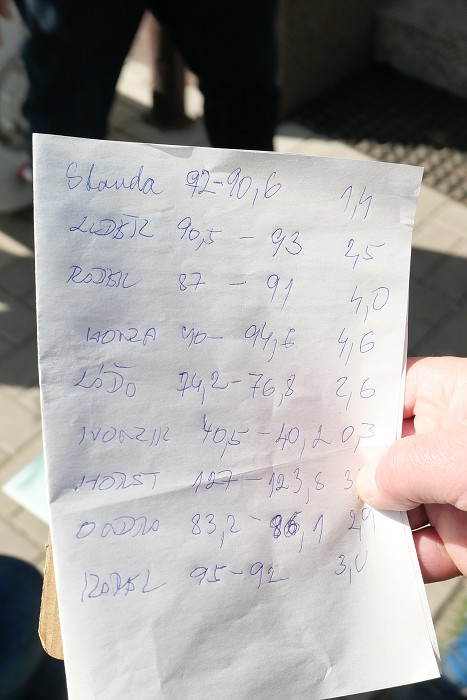 Standa 92-90,6 1,4
LUDĚK 90,5 - 93 2,5
RADEK 87 - 91 4,0
HONZA 90- 94,6 4,6
LÓĎO 74,2-76,8 2,6
40,5-40,2 0,3
HORST 127-123,8 3
83,2-86,1 2,9
95-92 3,0